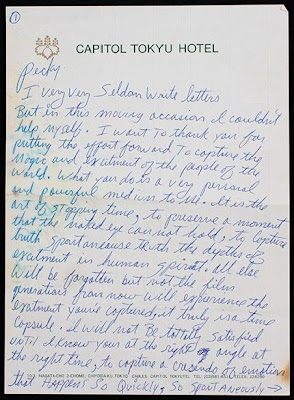 1
CAPITOL TOKYU HOTEL
Pecky
I very very Seldon write letters
But in this moving occasion I couldn't
help myself. I want to thank you for
putting the effort forward to capture the
magic and exitment of the people of the
world. What you do is a very personal
and powerful medium to use. It is the
art of stopping time, to preserve a moment
that the naked eye cannot hold, to capture
truth spontaneouse truth the depths of
exitment in human spirit. all else
will be forgotten but not the film
generations from now will experience the
exitment you've captured, it truly is a time
capsule. I will not be totally satisfied
until I know your at the right angle at
the right time, to capture a crecendo of emotion
that Happens So Quickly, So Spontaneously →
10-3, NAGATA-CHO 2-CHOME, CHIYODA-KU, TOKYO CABLES: CAPITOL TOKYUTEL